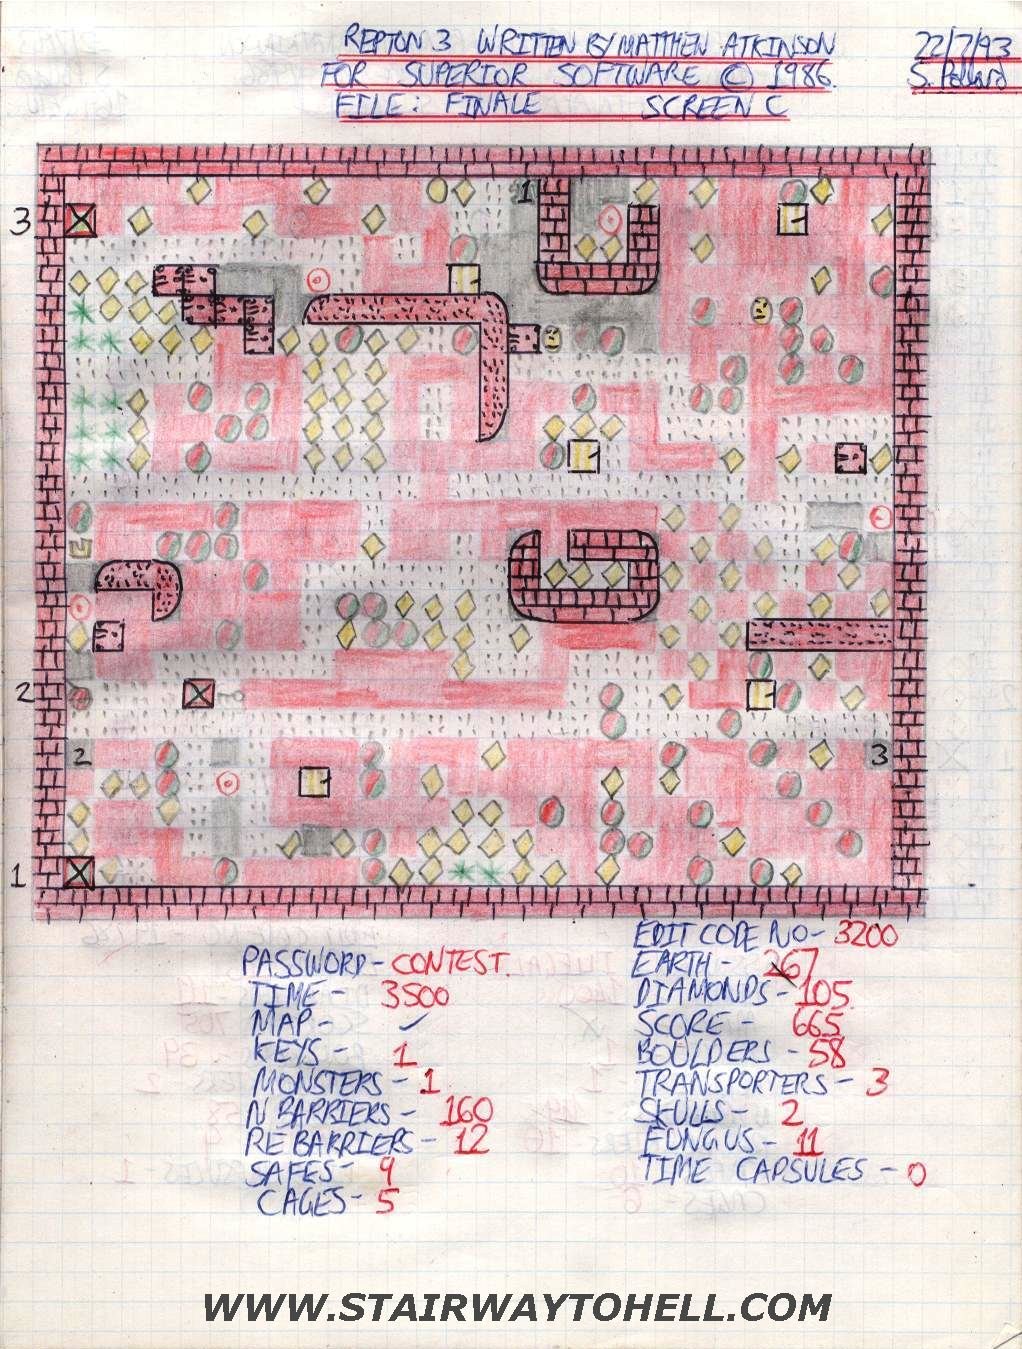 REPTON 3 WRITTEN BY MATTHEW ATKINSON
FOR SUPERIOR SOFTWARE © 1986.
FILE: FINALE SCREEN C
22/7/93
S. Pollard
1
3
2
2
3
1
PASSWORD - CONTEST.
TIME - 3500
MAP - ✓
KEYS - 1
MONSTERS - 1
N BARRIERS - 160
RE BARRIERS - 12
SAFES - 9
CAGES - 5
EDIT CODE NO - 3200
EARTH - 267
DIAMONDS - 105
SCORE - 665
BOULDERS - 58
TRANSPORTERS - 3
SKULLS - 2
FUNGUS - 11
TIME CAPSULES - 0
WWW.STAIRWAYTOHELL.COM